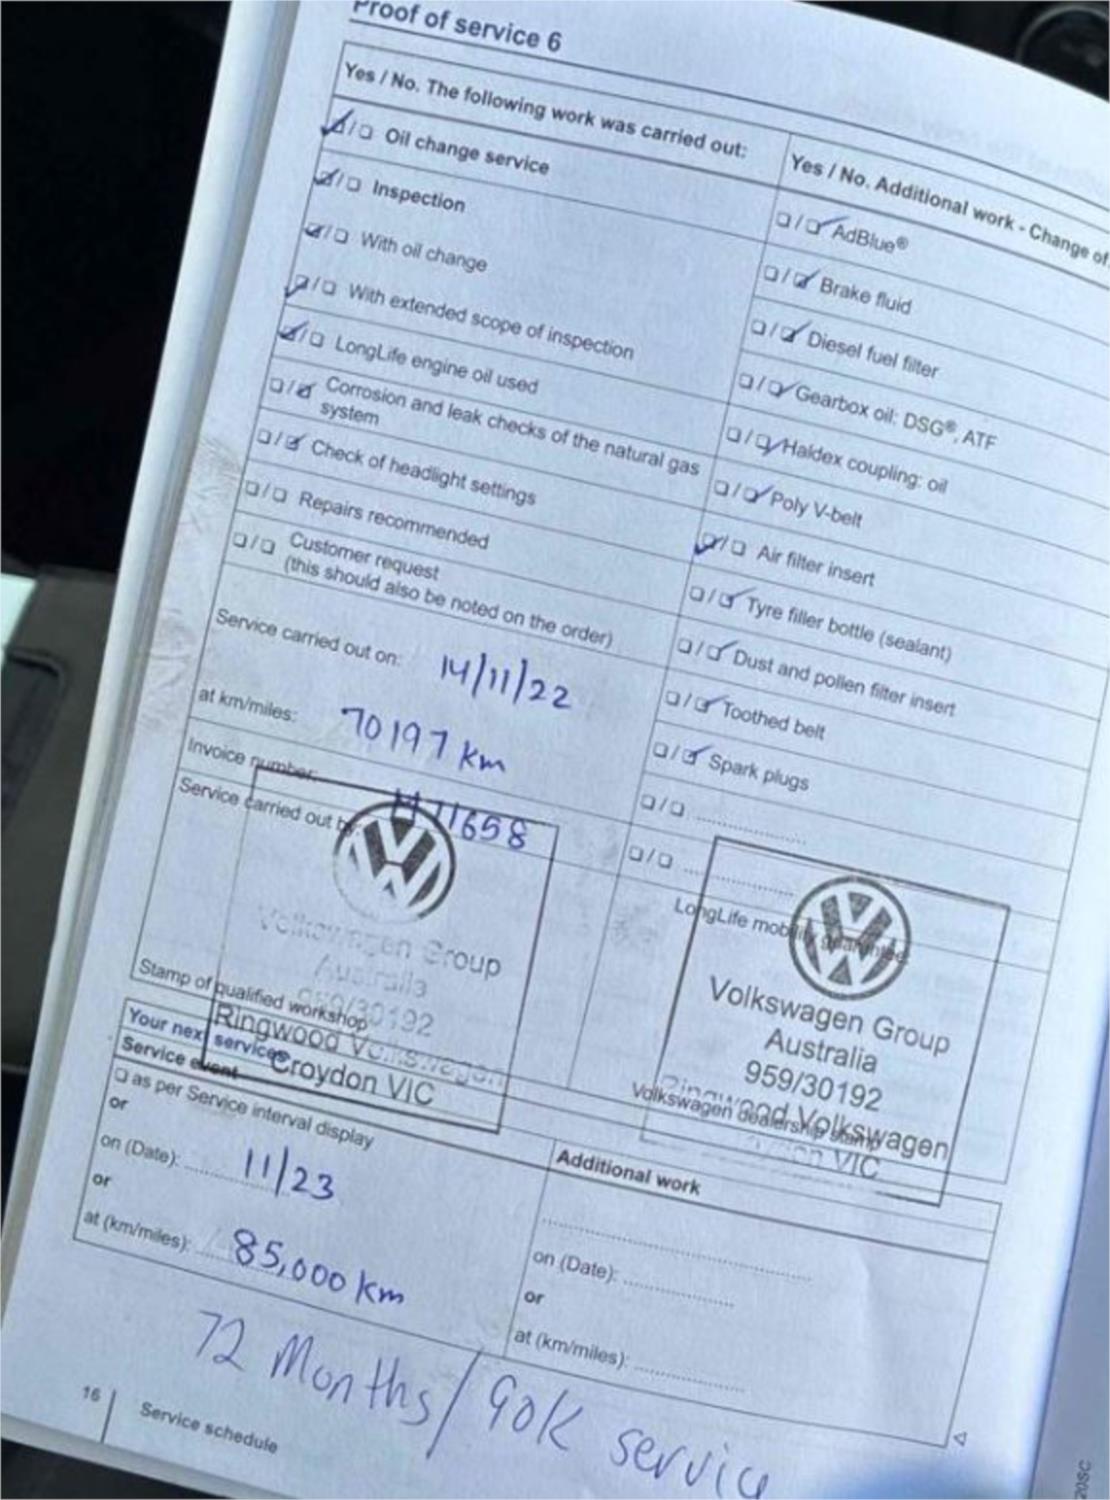 Proof of service 6
Yes / No. The following work was carried out:
Oil change service
Inspection
With oil change
With extended scope of inspection
LongLife engine oil used
Corrosion and leak checks of the natural gas
system
Check of headlight settings
Repairs recommended
Customer request
(this should also be noted on the order)
Service carried out on: 14/11/22
at km/miles: 70197 km
Invoice number:
11658
Service carried out by
Volkswagen Group
Australia
959/30192
Ringwood Volkswagen
Croydon VIC
Stamp of qualified workshop
Yes / No. Additional work - Change of
AdBlue®
Brake fluid
Diesel fuel filter
Gearbox oil: DSG®, ATF
Haldex coupling: oil
Poly V-belt
Air filter insert
Tyre filler bottle (sealant)
Dust and pollen filter insert
Toothed belt
Spark plugs
LongLife mobility guarantee:
Volkswagen Group
Australia
959/30192
Ringwood Volkswagen
VIC
Volkswagen dealership stamp
Your next services
Service event
as per Service interval display
or
on (Date): 11/23
or
at (km/miles): 85,000 km
Additional work
on (Date):
or
at (km/miles):
72 Months / 90K service
16
Service schedule
20SC